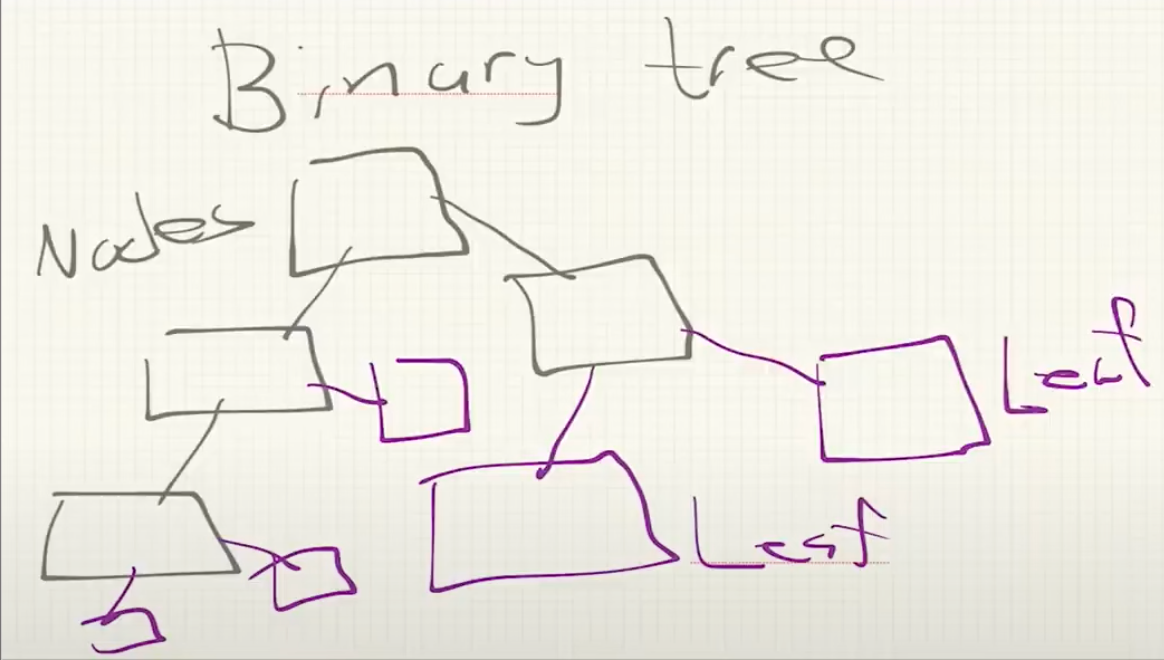 Binary tree
Nodes
Leaf
Leaf